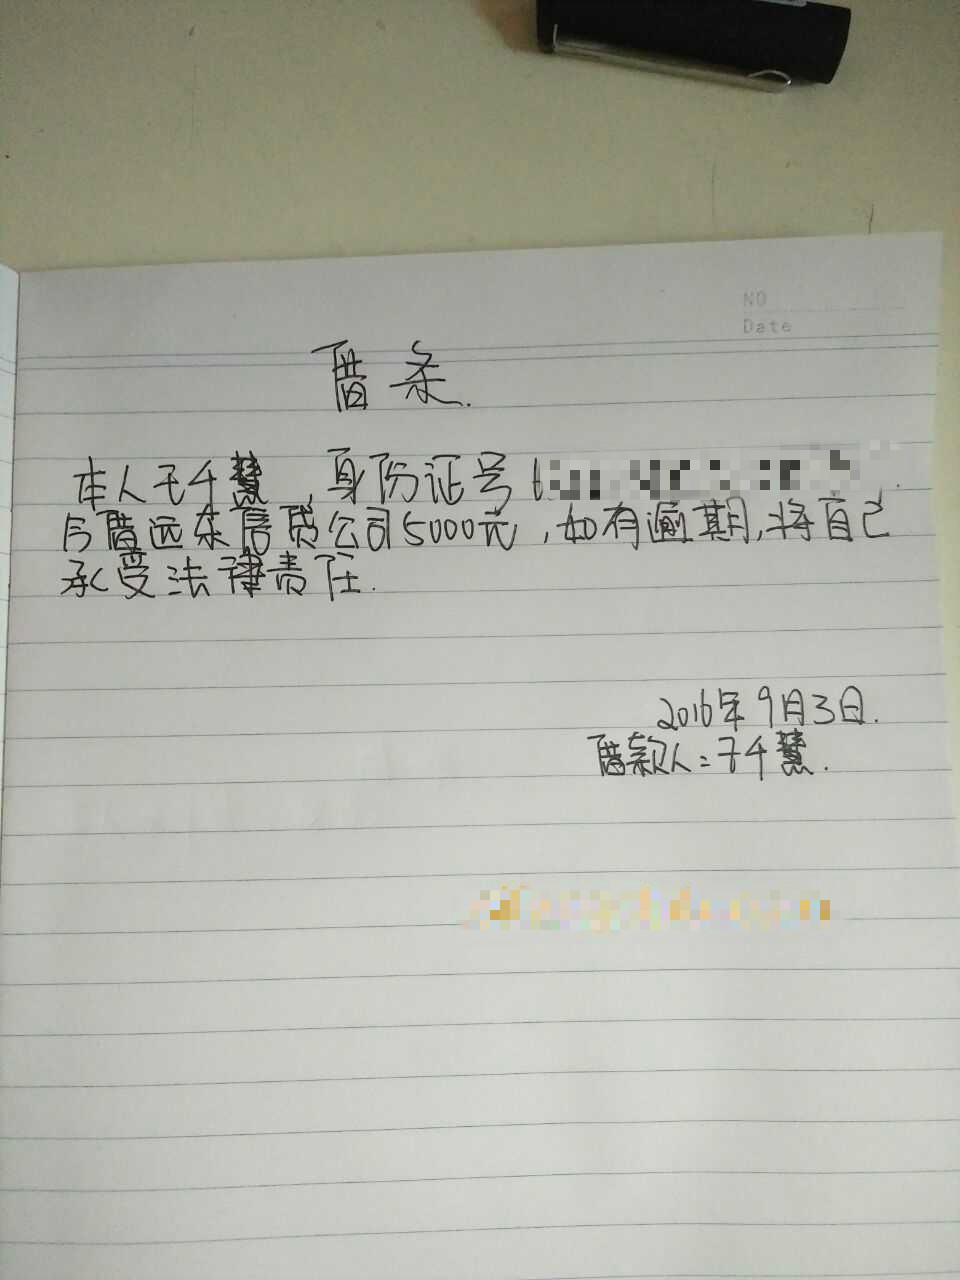 NO
Date
借条.
本人于千慧，身份证号6
今借远东信贷公司5000元，如有逾期，将自己
承受法律责任.
2016年9月3日.
借款人：于千慧.